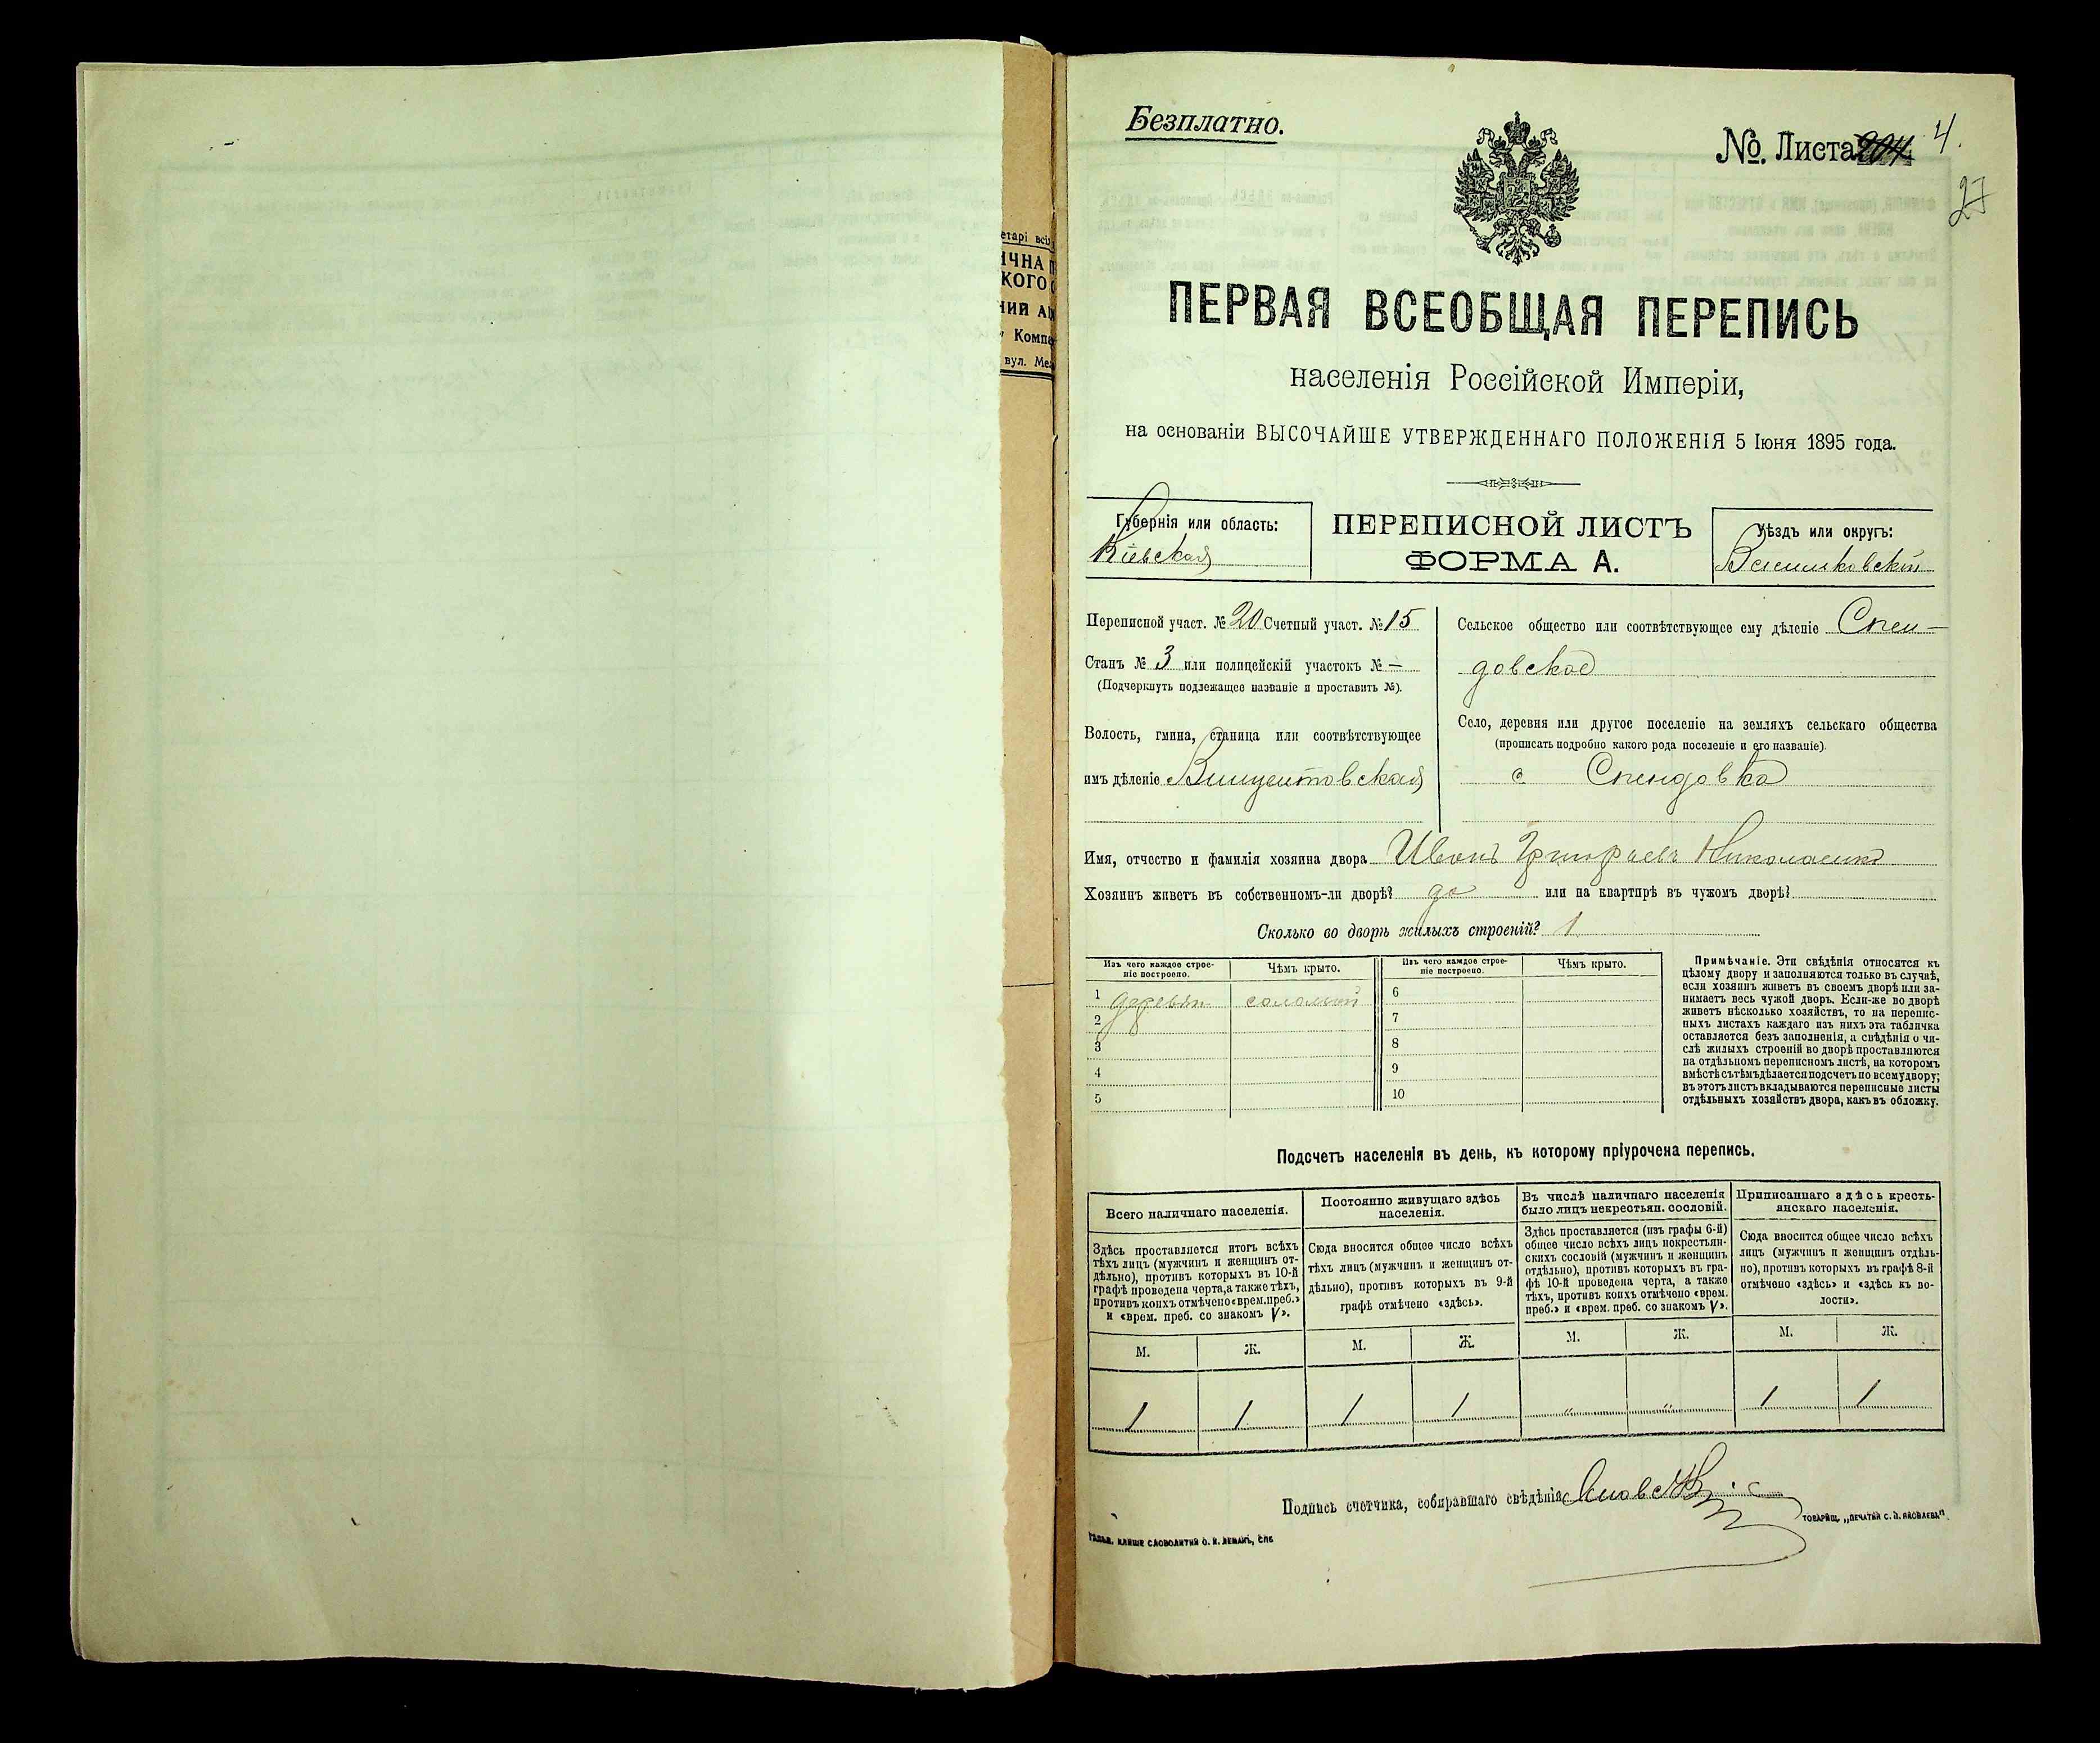 етарі всіх
ІЧНА П
КОГО
НИЙ АР
Компа
вул. Ме
Безплатно.
№. Листа 204 4.
27
ПЕРВАЯ ВСЕОБЩАЯ ПЕРЕПИСЬ
населенія Россійской Имперіи,
на основаніи ВЫСОЧАЙШЕ УТВЕРЖДЕННАГО ПОЛОЖЕНІЯ 5 Іюня 1895 года.
Губернія или область:
Кіевская
ПЕРЕПИСНОЙ ЛИСТЪ
ФОРМА А.
Уѣздъ или округъ:
Васильковскій
Переписной участ. № 20 Счетный участ. № 15
Станъ № 3 или полицейскій участокъ № —
(Подчеркнуть подлежащее названіе и проставить №).
Волость, гмина, станица или соотвѣтствующее
имъ дѣленіе Винцентовская
Сельское общество или соотвѣтствующее ему дѣленіе Спен-
довское
Село, деревня или другое поселеніе на земляхъ сельскаго общества
(прописать подробно какого рода поселеніе и его названіе).
с Спендовка
Имя, отчество и фамилія хозяина двора Иванъ Григорьевъ Николаенко
Хозяинъ живетъ въ собственномъ-ли дворѣ? да или на квартирѣ въ чужомъ дворѣ?
Сколько во дворѣ жилыхъ строеній? 1
Изъ чего каждое строе-
ніе построено.
Чѣмъ крыто.
Изъ чего каждое строе-
ніе построено.
Чѣмъ крыто.
1 деревян соломой 6
2 7
3 8
4 9
5 10
Примѣчаніе. Эти свѣдѣнія относятся къ
цѣлому двору и заполняются только въ случаѣ,
если хозяинъ живетъ въ своемъ дворѣ или за-
нимаетъ весь чужой дворъ. Если-же во дворѣ
живетъ нѣсколько хозяйствъ, то на перепис-
ныхъ листахъ каждаго изъ нихъ эта табличка
оставляется безъ заполненія, а свѣдѣнія о чи-
слѣ жилыхъ строеній во дворѣ проставляются
на отдѣльномъ переписномъ листѣ, на которомъ
вмѣстѣ съ тѣмъ дѣлается подсчетъ по всему двору;
въ этотъ листъ вкладываются переписные листы
отдѣльныхъ хозяйствъ двора, какъ въ обложку.
Подсчетъ населенія въ день, къ которому пріурочена перепись.
Всего наличнаго населенія.
Здѣсь проставляется итогъ всѣхъ
тѣхъ лицъ (мужчинъ и женщинъ от-
дѣльно), противъ которыхъ въ 10-й
графѣ проведена черта, а также тѣхъ,
противъ коихъ отмѣчено «врем. преб.»
и «врем. преб. со знакомъ V».
Постоянно живущаго здѣсь
населенія.
Сюда вносится общее число всѣхъ
тѣхъ лицъ (мужчинъ и женщинъ от-
дѣльно), противъ которыхъ въ 9-й
графѣ отмѣчено «здѣсь».
Въ числѣ наличнаго населенія
было лицъ некрестьян. сословій.
Здѣсь проставляется (изъ графы 6-й)
общее число всѣхъ лицъ некрестьян-
скихъ сословій (мужчинъ и женщинъ
отдѣльно), противъ которыхъ въ гра-
фѣ 10-й проведена черта, а также
тѣхъ, противъ коихъ отмѣчено «врем.
преб.» и «врем. преб. со знакомъ V».
Приписаннаго здѣсь кресть-
янскаго населенія.
Сюда вносится общее число всѣхъ
лицъ (мужчинъ и женщинъ отдѣль-
но), противъ которыхъ въ графѣ 8-й
отмѣчено «здѣсь» и «здѣсь къ во-
лости».
М. Ж. М. Ж. М. Ж. М. Ж.
1 1 1 1 „ „ 1 1
Подпись счетчика, собиравшаго свѣдѣнія
ТОВАРИЩ. „ПЕЧАТНЯ С. П. ЯКОВЛЕВА".
КЛИШЕ СЛОВОЛИТНИ О. И. ЛЕМАНЪ, СПБ